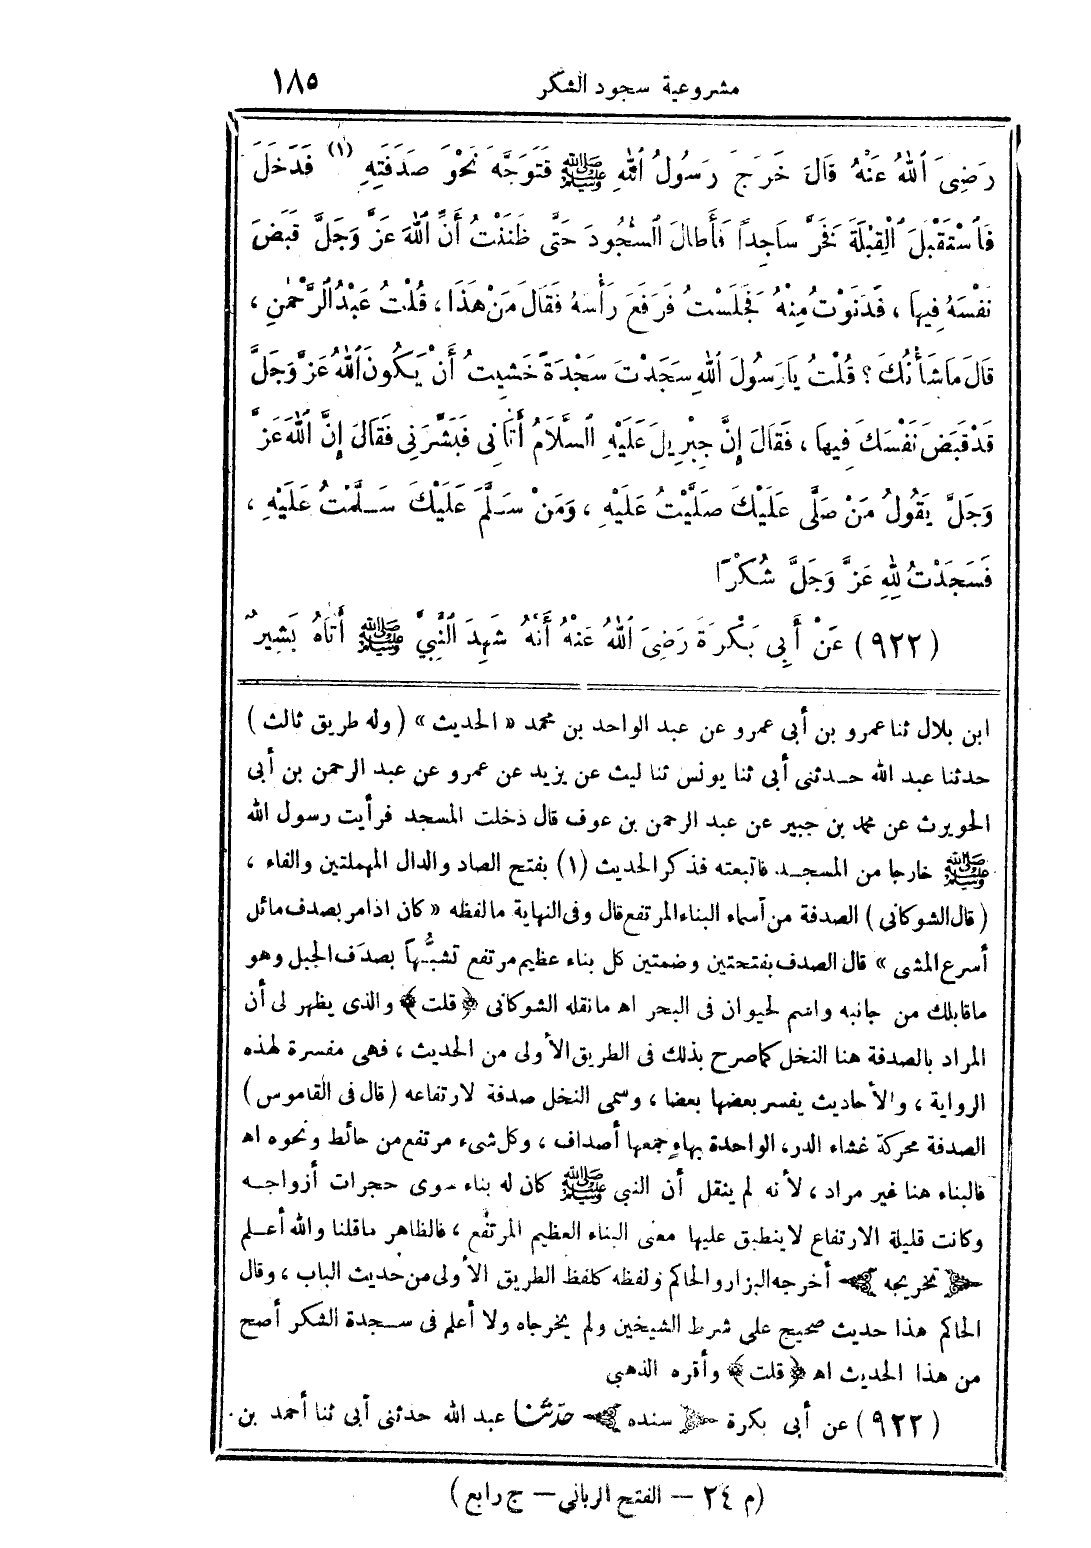 مشروعية سجود الشكر ١٨٥
رَضِىَ ٱللهُ عَنْهُ قَالَ خَرَجَ رَسُولُ ٱللهِ ﷺ فَتَوَجَّهَ نَحْوَ صَدَفَتِهِ (١) فَدَخَلَ
فَاسْتَقْبَلَ ٱلْقِبْلَةَ فَخَرَّ سَاجِدًا فَأَطَالَ ٱلسُّجُودَ حَتَّى ظَنَنْتُ أَنَّ ٱللهَ عَزَّ وَجَلَّ قَبَضَ
نَفْسَهُ فِيهَا ، فَدَنَوْتُ مِنْهُ فَجَلَسْتُ فَرَفَعَ رَأْسَهُ فَقَالَ مَنْ هَذَا ، قُلْتُ عَبْدُ الرَّحْمٰنِ ،
قَالَ مَا شَأْنُكَ ؟ قُلْتُ يَا رَسُولَ ٱللهِ سَجَدْتَ سَجْدَةً خَشِيتُ أَنْ يَكُونَ ٱللهُ عَزَّ وَجَلَّ
قَدْ قَبَضَ نَفْسَكَ فِيهَا ، فَقَالَ إِنَّ جِبْرِيلَ عَلَيْهِ ٱلسَّلَامُ أَتَانِى فَبَشَّرَنِى فَقَالَ إِنَّ ٱللهَ عَزَّ
وَجَلَّ يَقُولُ مَنْ صَلَّى عَلَيْكَ صَلَّيْتُ عَلَيْهِ ، وَمَنْ سَلَّمَ عَلَيْكَ سَلَّمْتُ عَلَيْهِ ،
فَسَجَدْتُ لِلهِ عَزَّ وَجَلَّ شُكْرًا
(٩٢٢) عَنْ أَبِى بَكْرَةَ رَضِىَ ٱللهُ عَنْهُ أَنَّهُ شَهِدَ ٱلنَّبِيَّ ﷺ أَتَاهُ بَشِيرٌ
ابن بلال ثنا عمرو بن أبى عمرو عن عبد الواحد بن محمد « الحديث » ( وله طريق ثالث )
حدثنا عبد الله حدثنى أبى ثنا يونس ثنا ليث عن يزيد عن عمرو عن عبد الرحمن بن أبى
الحويرث عن محمد بن جبير عن عبد الرحمن بن عوف قال دخلت المسجد فرأيت رسول الله
ﷺ خارجا من المسجد فاتبعته فذكر الحديث (١) بفتح الصاد والدال المهملتين والفاء ،
( قال الشوكانى ) الصدفة من أسماء البناء المرتفع قال وفى النهاية ما لفظه « كان اذا مر بصدف مائل
أسرع المشى » قال الصدف بفتحتين وضمتين كل بناء عظيم مرتفع تشبُّهًا بصدَف الجبل وهو
ما قابلك من جانبه واسم لحيوان فى البحر اهـ ما نقله الشوكانى ﴿ قلت ﴾ والذى يظهر لى أن
المراد بالصدفة هنا النخل كما صرح بذلك فى الطريق الأولى من الحديث ، فهى مفسرة لهذه
الرواية ، والأحاديث يفسر بعضها بعضا ، وسمى النخل صدفة لارتفاعه ( قال فى القاموس )
الصدفة محركة غشاء الدر، الواحدة بهاءٍ جمعها أصداف ، وكل شىء مرتفع من حائط ونحوه اهـ
فالبناء هنا غير مراد ، لأنه لم ينقل أن النبي ﷺ كان له بناء سوى حجرات أزواجه
وكانت قليلة الارتفاع لا ينطبق عليها معنى البناء العظيم المرتفع ، فالظاهر ما قلنا والله أعلم
﴿ تخريجه ﴾ أخرجه البزار والحاكم ولفظه كلفظ الطريق الأولى من حديث الباب ، وقال
الحاكم هذا حديث صحيح على شرط الشيخين ولم يخرجاه ولا أعلم فى سجدة الشكر أصح
من هذا الحديث اهـ ﴿ قلت ﴾ وأقره الذهبى
(٩٢٢) عن أبى بكرة ﴿ سنده ﴾ حدثنا عبد الله حدثنى أبى ثنا أحمد بن
(م ٢٤ — الفتح الربانى — ج رابع)